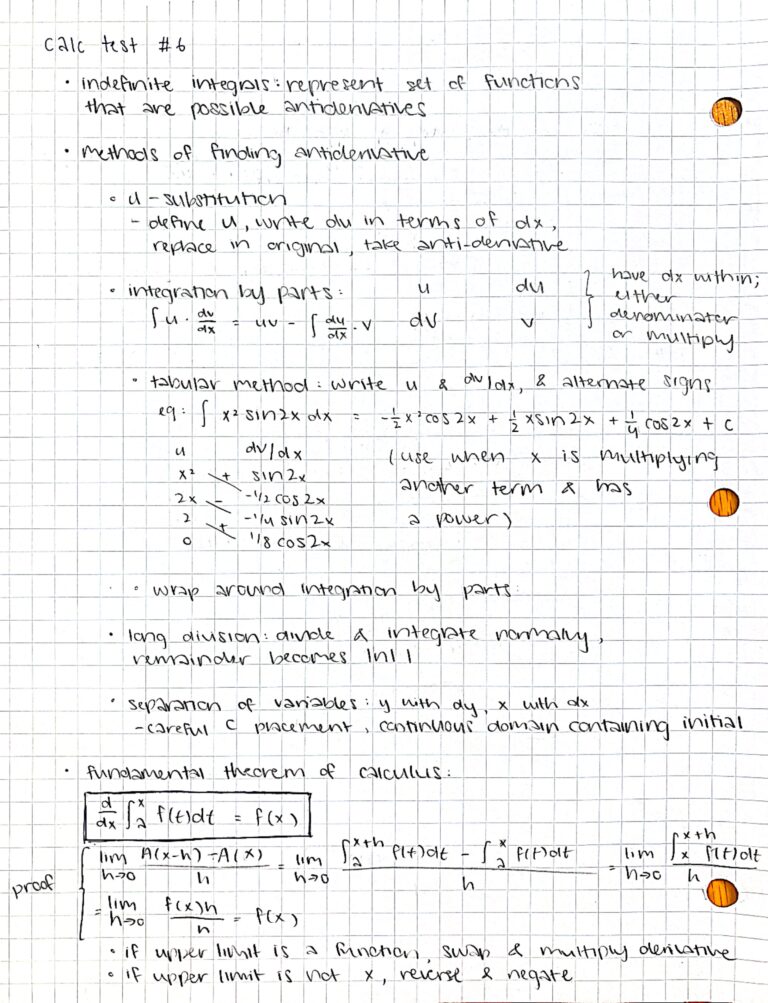 calc test #6
• indefinite integrals: represent set of functions
that are possible antiderivatives
• methods of finding antiderivative
• u-substitution
- define u, write du in terms of dx,
replace in original, take anti-derivative
• integration by parts: u du } have dx within;
∫u · dv/dx = uv - ∫ du/dx · v dv v either
denominater
or multiply
• tabular method: write u & dv/dx, & alternate signs
eg: ∫ x² sin2x dx = -1/2 x² cos2x + 1/2 x sin2x + 1/4 cos2x + C
u dv/dx (use when x is multiplying
x² + sin2x another term & has
2x - -1/2 cos2x a power)
2 + -1/4 sin2x
0 1/8 cos2x
• wrap around integration by parts
• long division: divide & integrate normally,
remainder becomes ln| |
• separation of variables: y with dy, x with dx
- careful C placement, continuous domain containing initial
• fundamental theorem of calculus:
d/dx ∫ₐˣ f(t)dt = f(x)
proof lim h→0 (A(x-h) - A(x))/h = lim h→0 (∫ₐˣ⁺ʰ f(t)dt - ∫ₐˣ f(t)dt)/h = lim h→0 (∫ₓˣ⁺ʰ f(t)dt)/h
= lim h→0 f(x)h/h = f(x)
• if upper limit is a function, swap & multiply derivative
• if upper limit is not x, reverse & negate